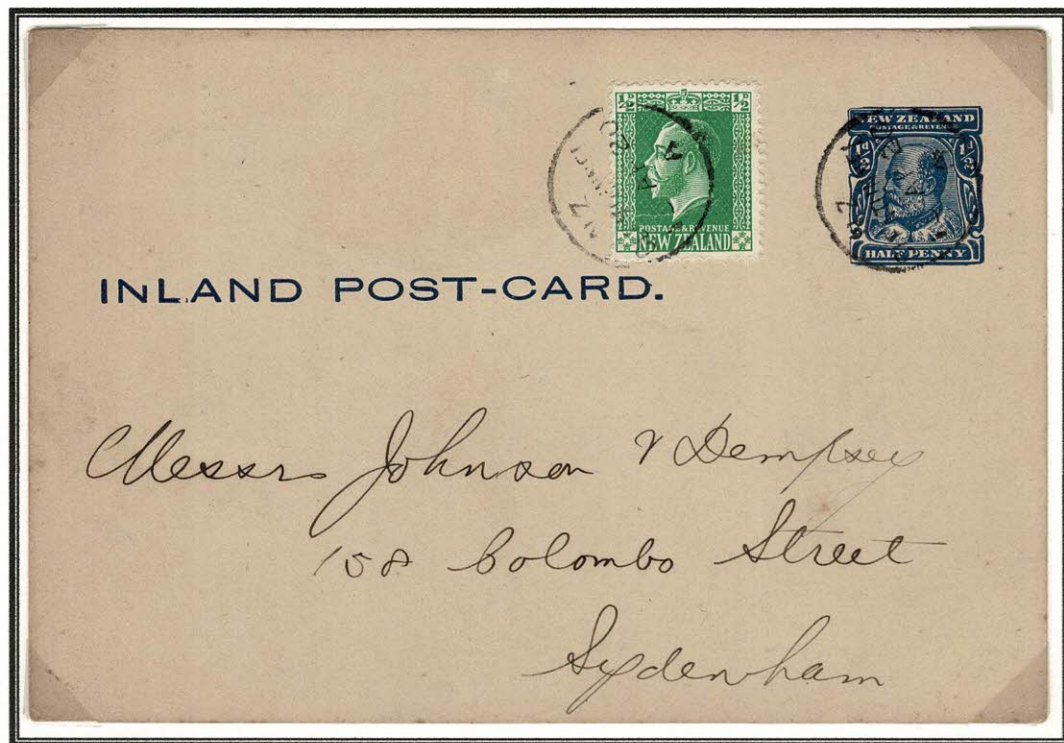 ½D ½D
POSTAGE & REVENUE
NEW ZEALAND
NEW ZEALAND
POSTAGE & REVENUE
½d ½d
HALF PENNY
INLAND POST-CARD.
Messrs Johnson & Dempsey
158 Colombo Street
Sydenham